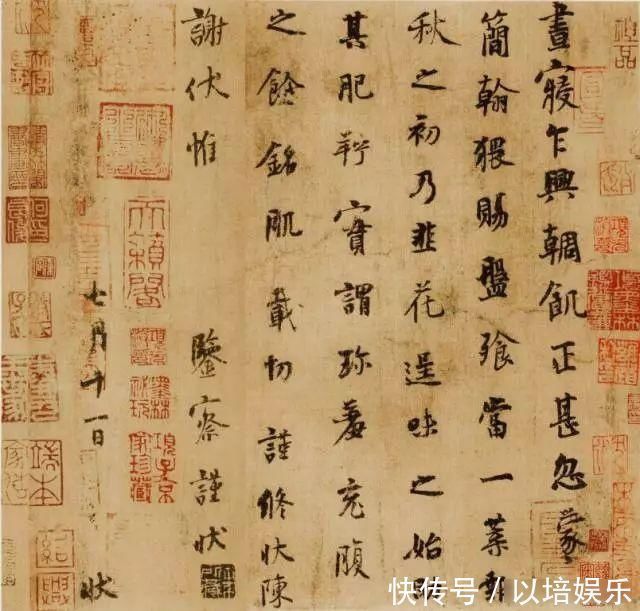 神品
晝寢乍興輖飢正甚忽蒙
簡翰猥賜盤飧當一葉報
秋之初乃韭花逞味之始助
其肥羜實謂珎羞充腹
之餘銘肌載切謹修狀陳
謝伏惟 鑒察謹狀
天籟閣
項子京家珍藏
七月十一日 狀
快传号 / 以培娱乐